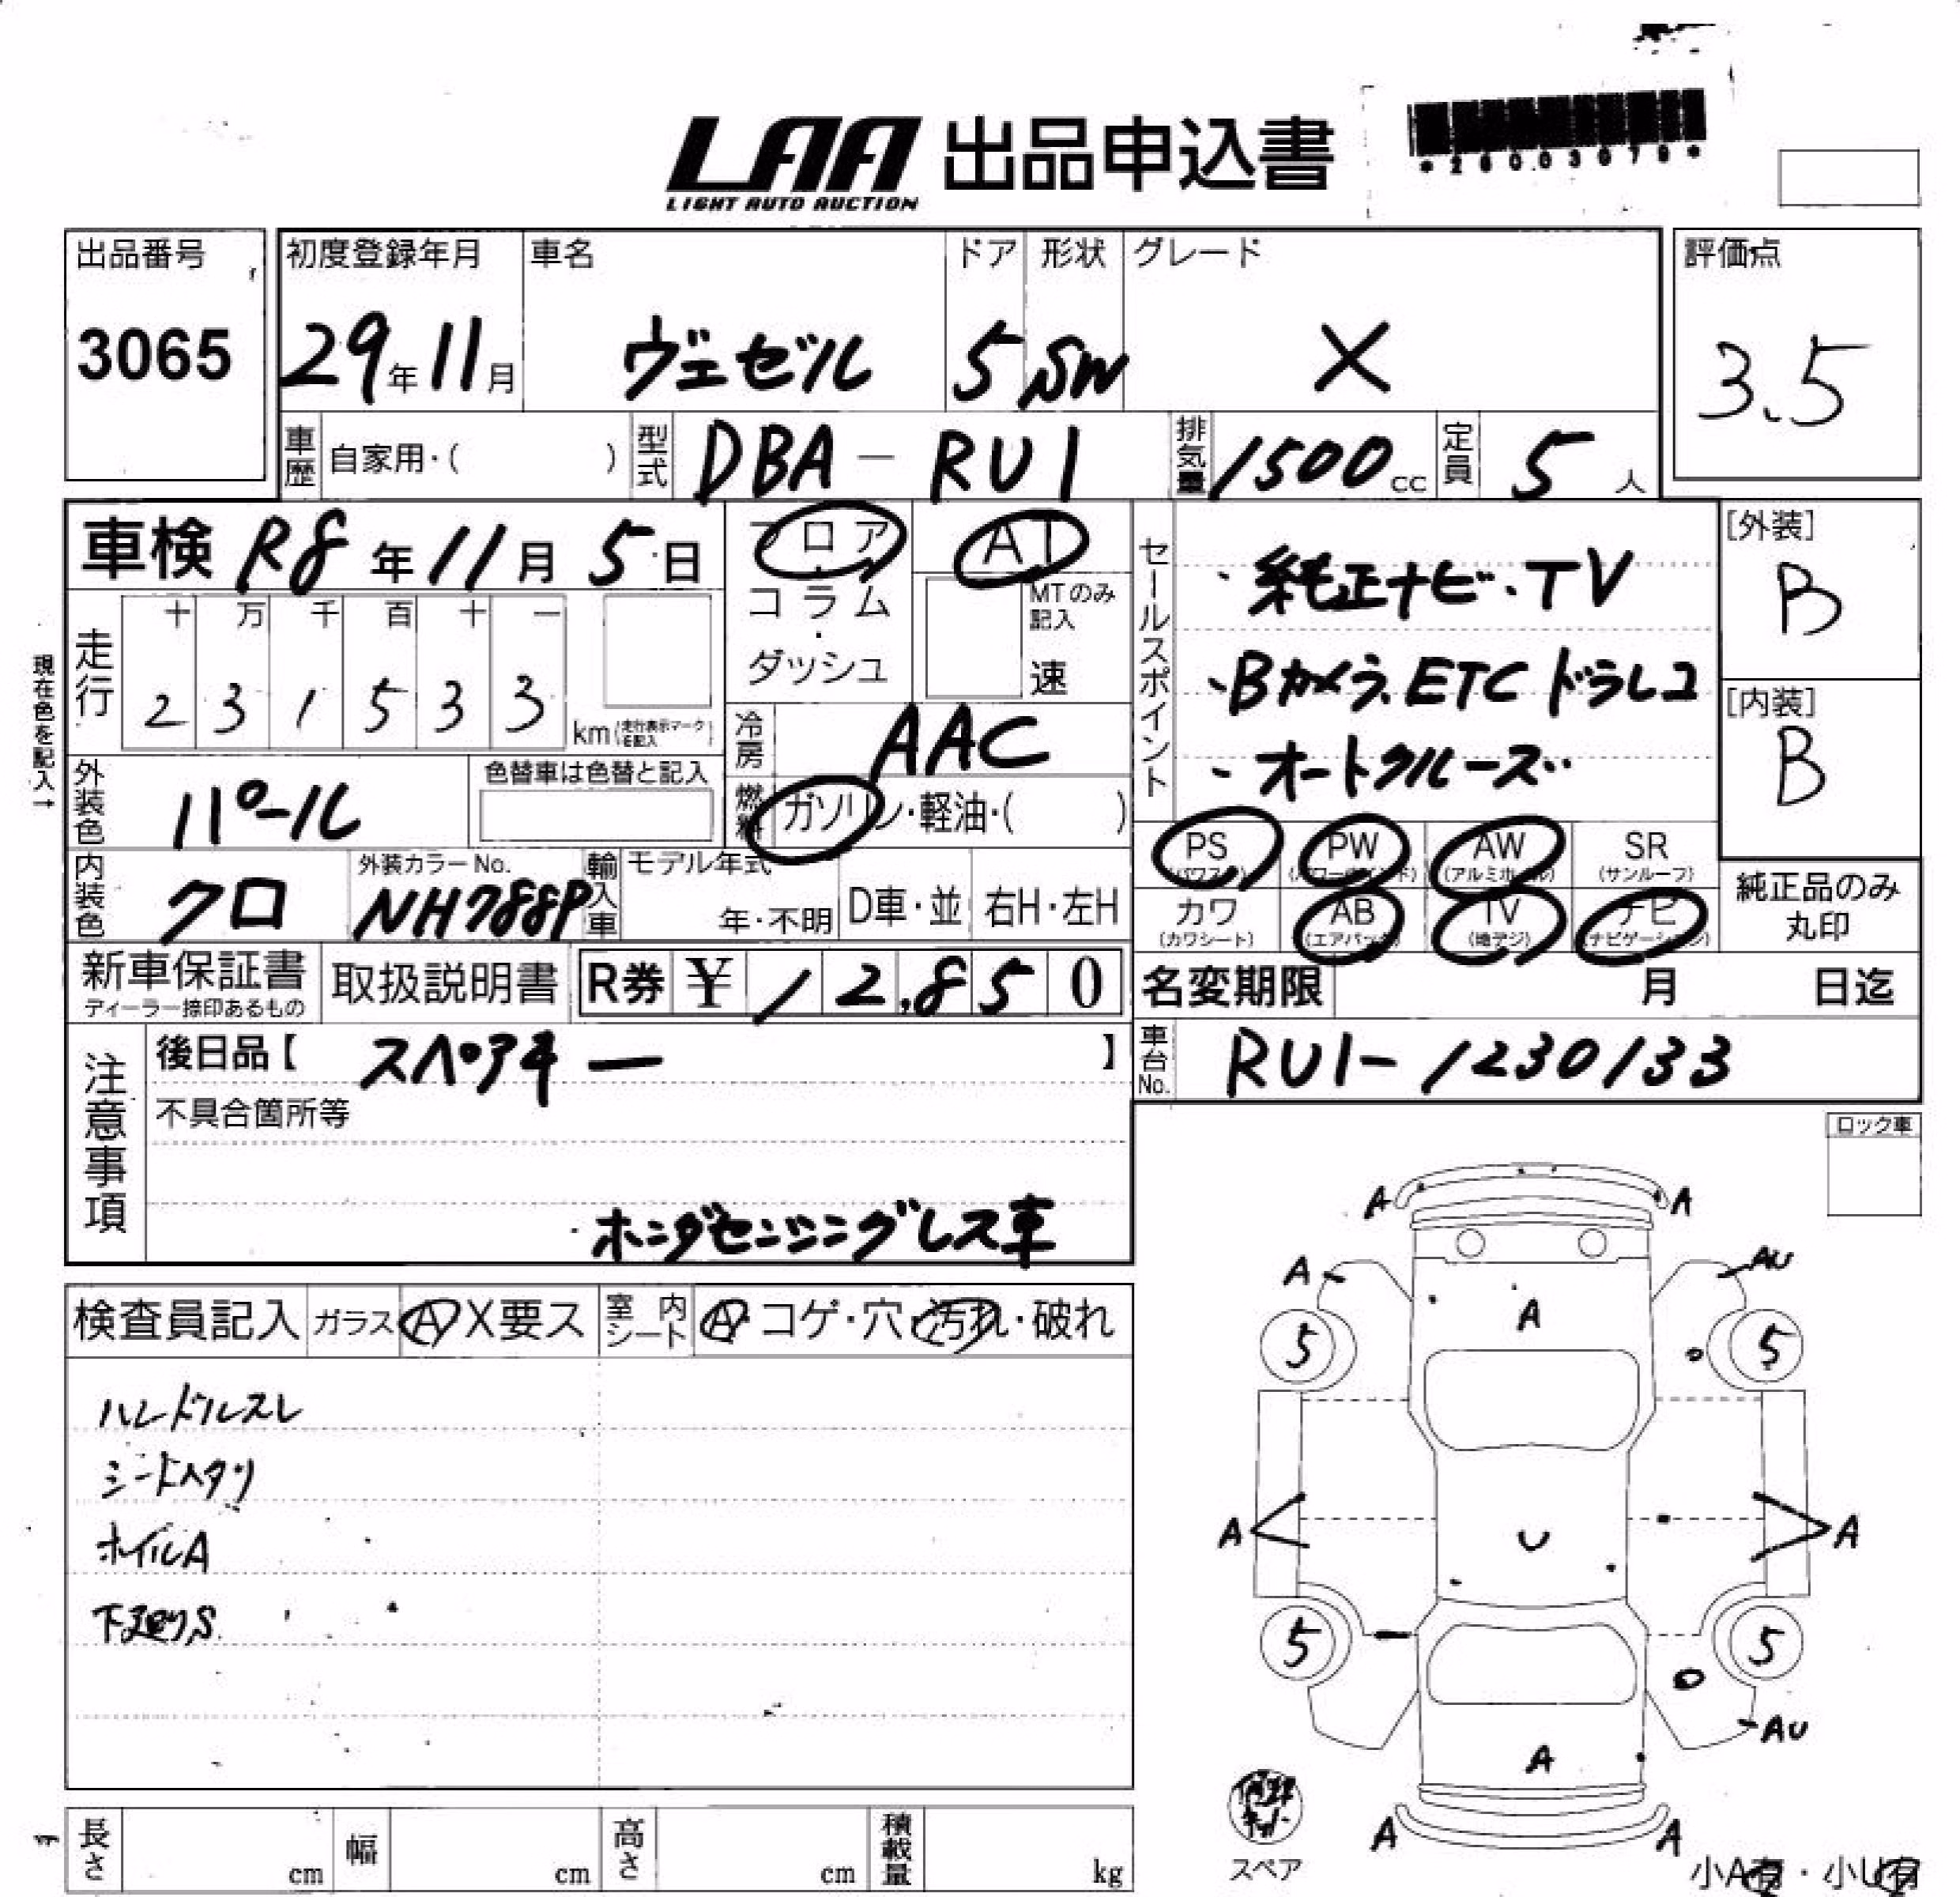 LAA 出品申込書
LIGHT AUTO AUCTION
*26003079*
出品番号 初度登録年月 車名 ドア 形状 グレード 評価点
3065 29年11月 ヴェゼル 5 SW X 3.5
車歴 自家用・( ) 型式 DBA-RU1 排気量 1500cc 定員 5人
車検 R8年11月5日 フロア AT セールスポイント [外装]
・純正ナビ・TV B
コラム・ MTのみ記入
走行 十万千百十一
ダッシュ 速 ・Bカメラ.ETC ドラレコ [内装]
231533 km (走行表示マークを記入) 冷房 AAC B
現在色を記入→
・オートクルーズ
外装色 パール 色替車は色替と記入 燃料 ガソリン・軽油・( )
PS (パワステ) PW (パワーウインド) AW (アルミホイル) SR (サンルーフ)
内装色 クロ 外装カラーNo. NH788P 輸入車 モデル年式 年・不明 D車・並 右H・左H
カワ (カワシート) AB (エアバック) TV (地デジ) ナビ (ナビゲーション) 純正品のみ丸印
新車保証書 ディーラー捺印あるもの 取扱説明書 R券 ¥12,850 名変期限 月 日迄
注意事項 後日品【スペアキー】 車台No. RU1-1230133
不具合箇所等 ロック車
ホンダセンシングレス車
検査員記入 ガラス A X要ス 室内シート A・コゲ・穴・汚れ・破れ
ハンドルスレ
シートヘタリ
ホイルA
下廻りS
A A
A AU
A
5 5
A U A
5 5
AU
A
A A
スペア
小A有・小U有
長さ cm 幅 cm 高さ cm 積載量 kg